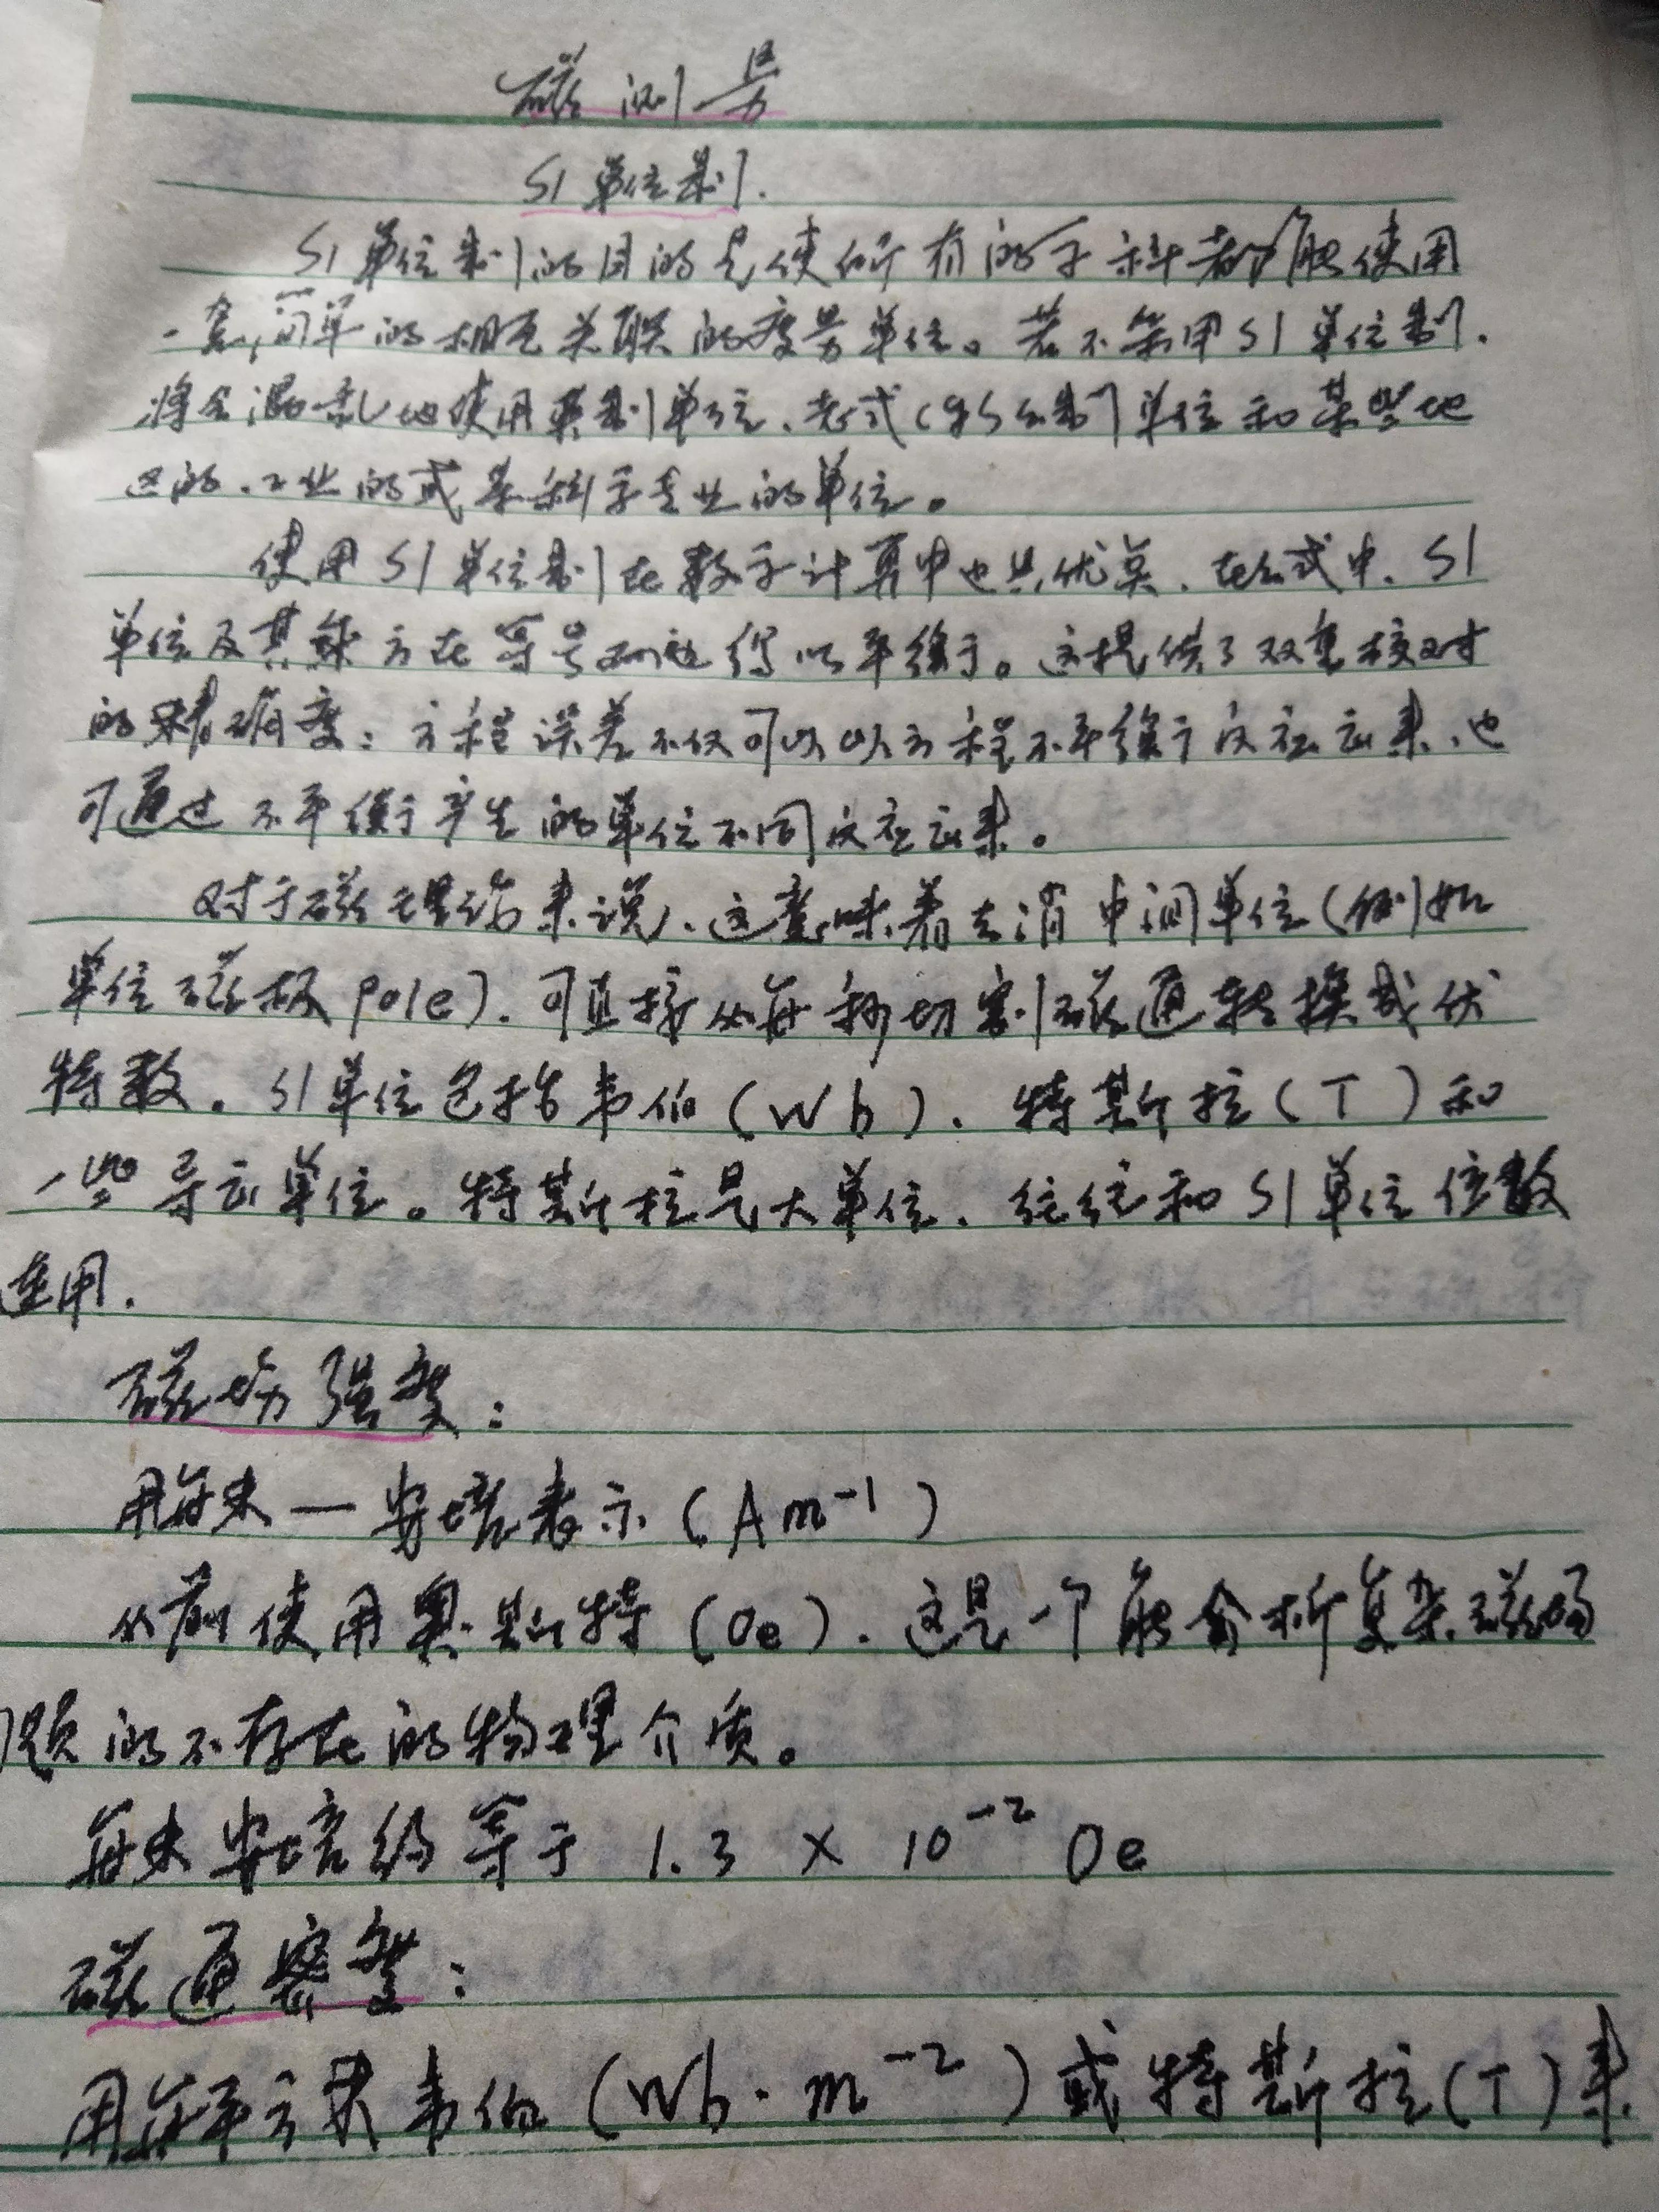 磁测量
SI单位制.
SI单位制的目的是使所有的学科都能使用
一套简单的相互关联的度量单位。若不采用SI单位制.
将会混乱地使用英制单位、老式cgs公制单位和某些地
区的、工业的或某科学专业的单位。
使用SI单位制在数学计算中也具优点、在公式中、SI
单位及其乘方在等号两边得以平衡。这提供了双重校对
的精确度：方程误差不仅可以从方程不平衡反应出来、也
可通过不平衡产生的单位不同反应出来。
对于磁理论来说、这意味着去消中间单位(例如
单位磁极pole). 可直接从每秒切割磁通转换成伏
特数。SI单位包括韦伯(Wb)、特斯拉(T)和
一些导出单位。特斯拉是大单位、往往和SI单位倍数
连用.
磁场强度：
用每米—安培表示(Am⁻¹)
从前使用奥斯特(Oe). 这是一个能分析复杂磁场
问题的不存在的物理介质。
每米安培约等于 1.3 × 10⁻² Oe
磁通密度：
用每平方米韦伯(Wb·m⁻²)或特斯拉(T)来